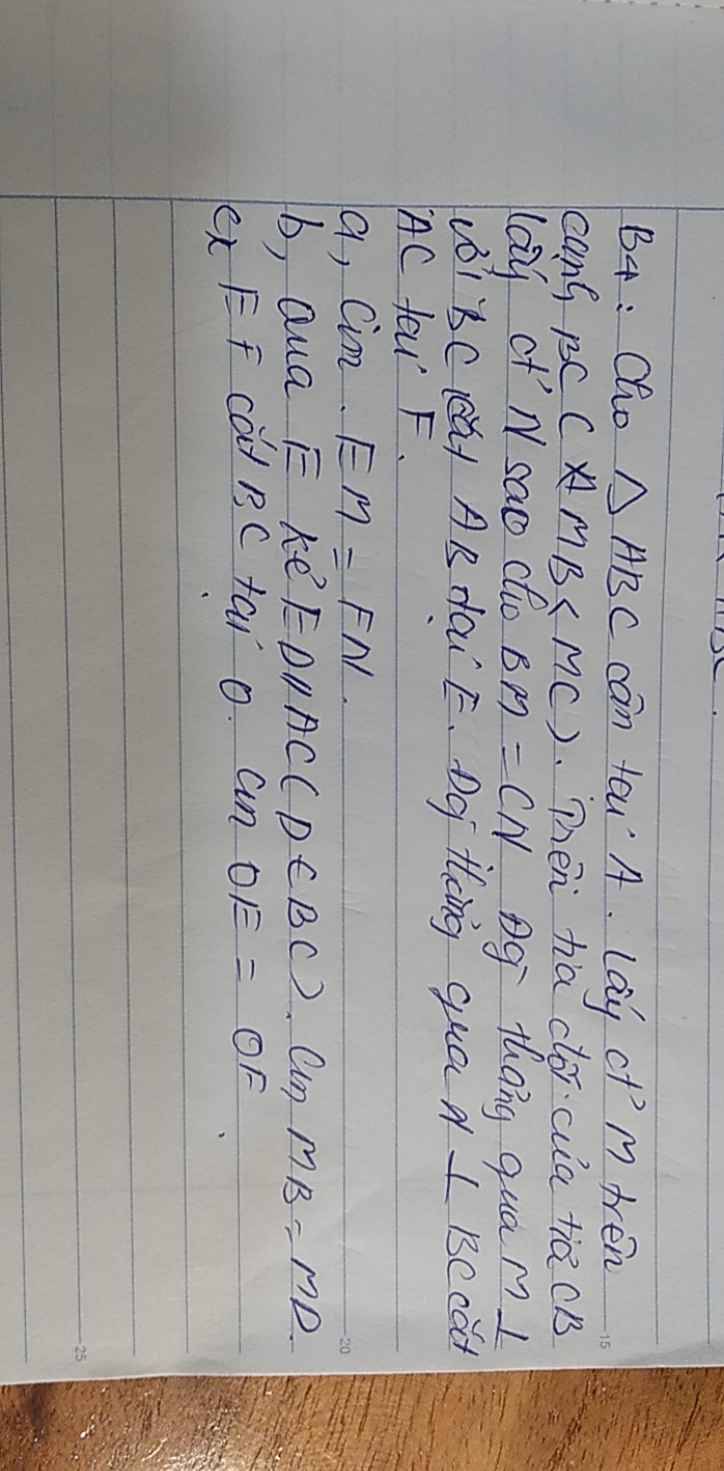 B4: Cho △ ABC cân tại A. lấy đ' M trên
cạnh BC ( MB < MC). Trên tia đối của tia CB
lấy đ' N sao cho BM = CN Đg thẳng qua M ⊥
với BC cắt AB tại E. Đg thẳng qua N ⊥ BC cắt
AC tại F.
a, Cm. EM = FN.
b, Qua E kẻ ED // AC ( D ∈ BC). Cm MB = MD.
c, EF cắt BC tại O. Cm OE = OF
15
20
25